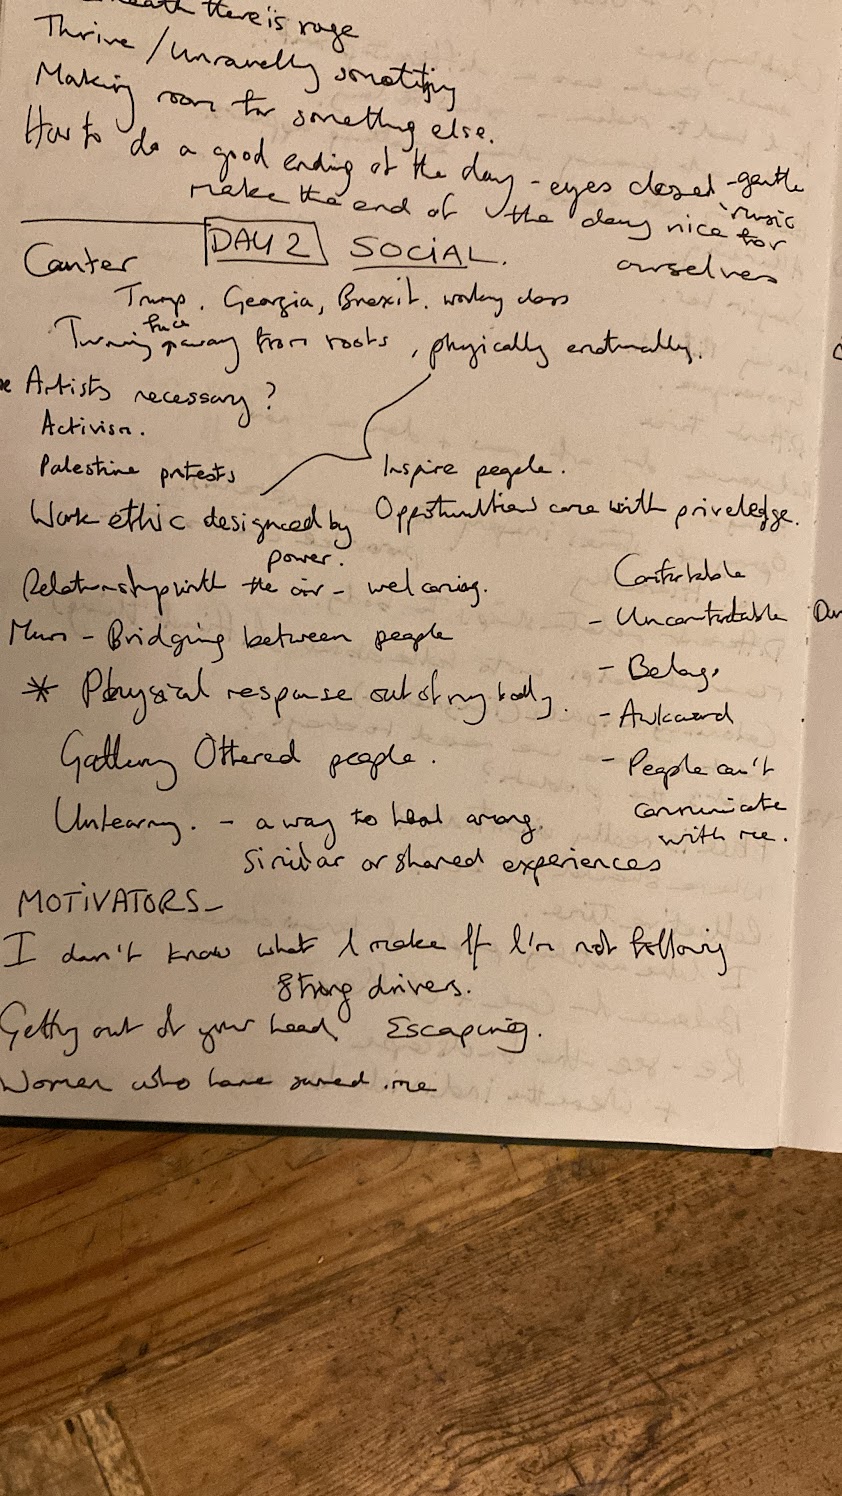 there is rage
Thrive / Unravelling something
Making room for something else.
How to do a good ending of the day - eyes closed - gentle music
make the end of the day nice for ourselves
DAY 2 SOCIAL.
Canter
Trump, Georgia, Brexit, working class
Turning face away from roots, physically emotionally.
Artists necessary?
Activism.
Palestine protests
Inspire people.
Work ethic designed by power.
Opportunities come with priveledge.
Relationship with the air - welcoming.
Mum - Bridging between people
* Physical response out of my body.
Gathering Othered people.
Unlearning. - a way to heal among
similar or shared experiences
Comfortable
- Uncomfortable
- Belong
- Awkward
- People can't
communicate
with me.
MOTIVATORS -
I don't know what I make if I'm not following
strong drivers.
Getting out of your head. Escaping.
Women who have saved me